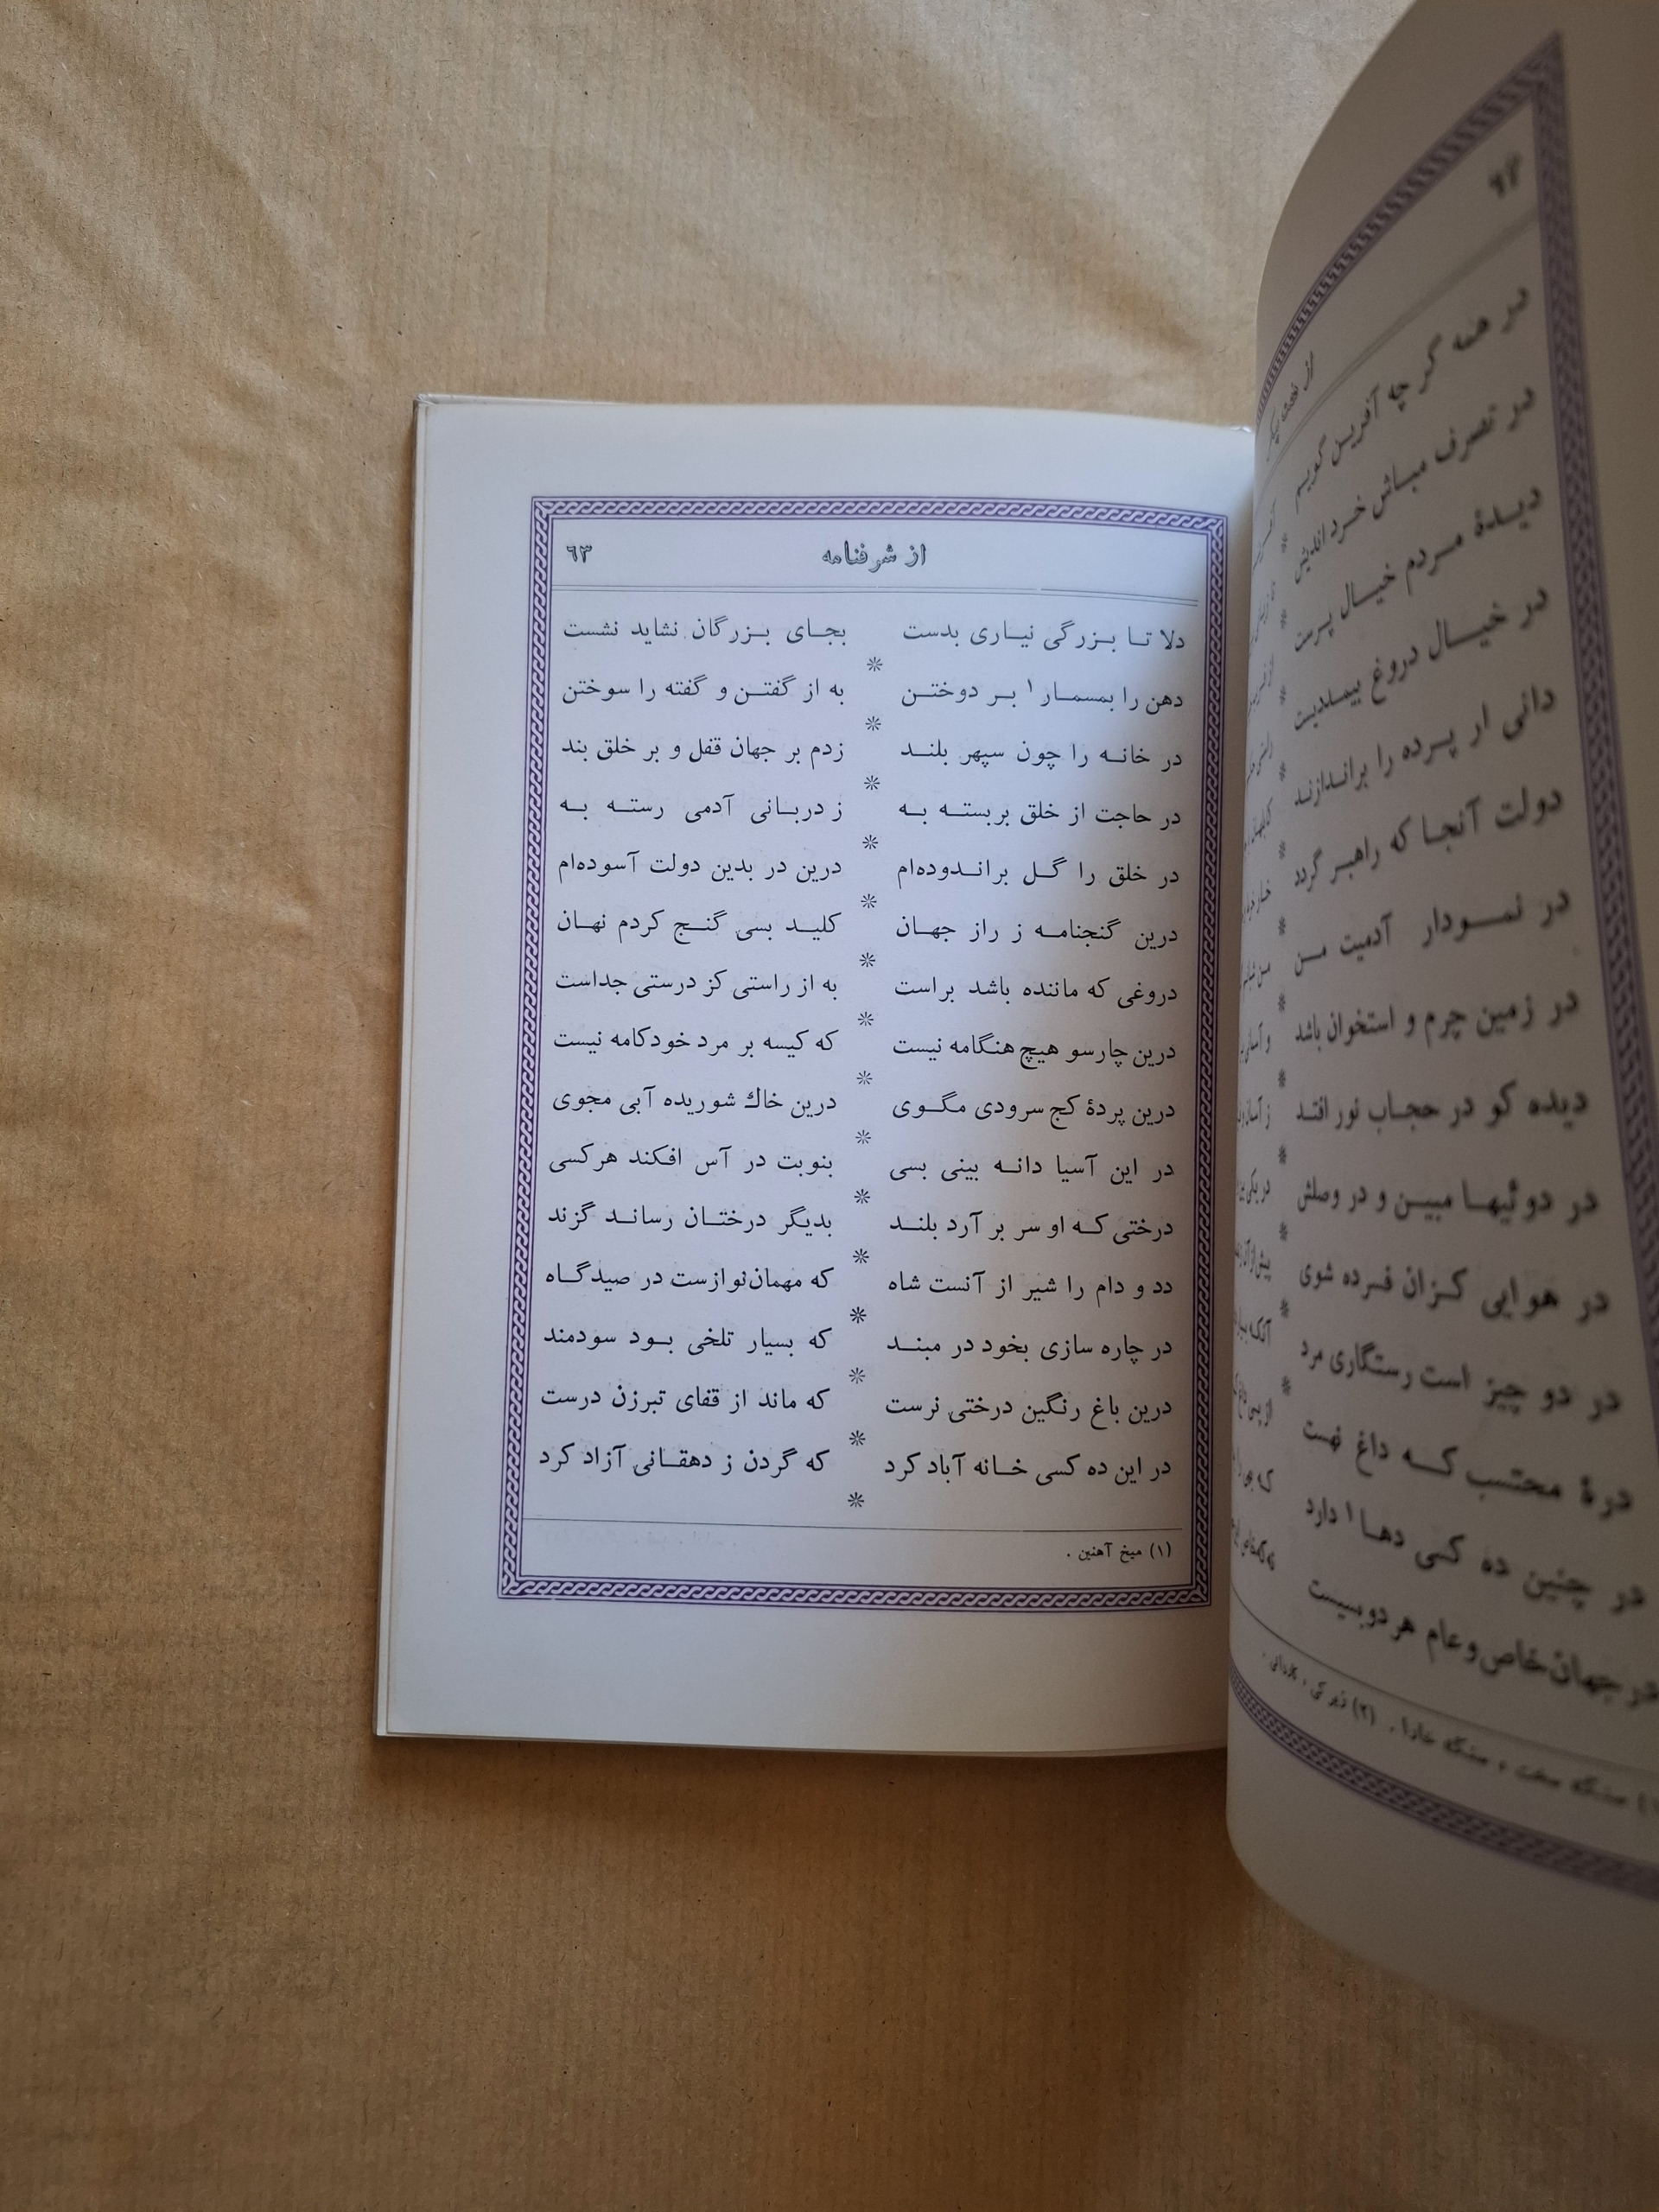 از شرفنامه ٦٣
دلا تا بزرگی نیاری بدست بجای بزرگان نشاید نشست
دهن را بمسمار ۱ بر دوختن به از گفتن و گفته را سوختن
در خانه را چون سپهر بلند زدم بر جهان قفل و بر خلق بند
در حاجت از خلق بربسته به ز دربانی آدمی رسته به
در خلق را گل براندوده‌ام درین در بدین دولت آسوده‌ام
درین گنجنامه ز راز جهان کلید بسی گنج کردم نهان
دروغی که ماننده باشد براست به از راستی کز درستی جداست
درین چارسو هیچ هنگامه نیست که کیسه بر مرد خودکامه نیست
درین پردهٔ کج سرودی مگوی درین خاك شوریده آبی مجوی
در این آسیا دانه بینی بسی بنوبت در آس افکند هرکسی
درختی که او سر بر آرد بلند بدیگر درختان رساند گزند
دد و دام را شیر از آنست شاه که مهمان‌نوازست در صیدگاه
در چاره سازی بخود در مبند که بسیار تلخی بود سودمند
درین باغ رنگین درختی نرست که ماند از قفای تبرزن درست
در این ده کسی خانه آباد کرد که گردن ز دهقانی آزاد کرد
(۱) میخ آهنین .
٦٢
در همه گر چه آفرین گویم
در تصرف مباش خرد اندیش
دیدهٔ مردم خیال پرست
در خیال دروغ بیمدیست
دانی ار پرده را براندازند
دولت آنجا که راهبر گردد
در نمودار آدمیت من
در زمین چرم و استخوان باشد
دیده کو در حجاب نور افتد
در دوئیها مبین و در وصلش
در هوایی کزان فسرده شوی
در دو چیز است رستگاری مرد
درهٔ محتسب که داغ نهست
در چنین ده کسی دها ۱ دارد
در جهان خاص و عام هر دو بسیست